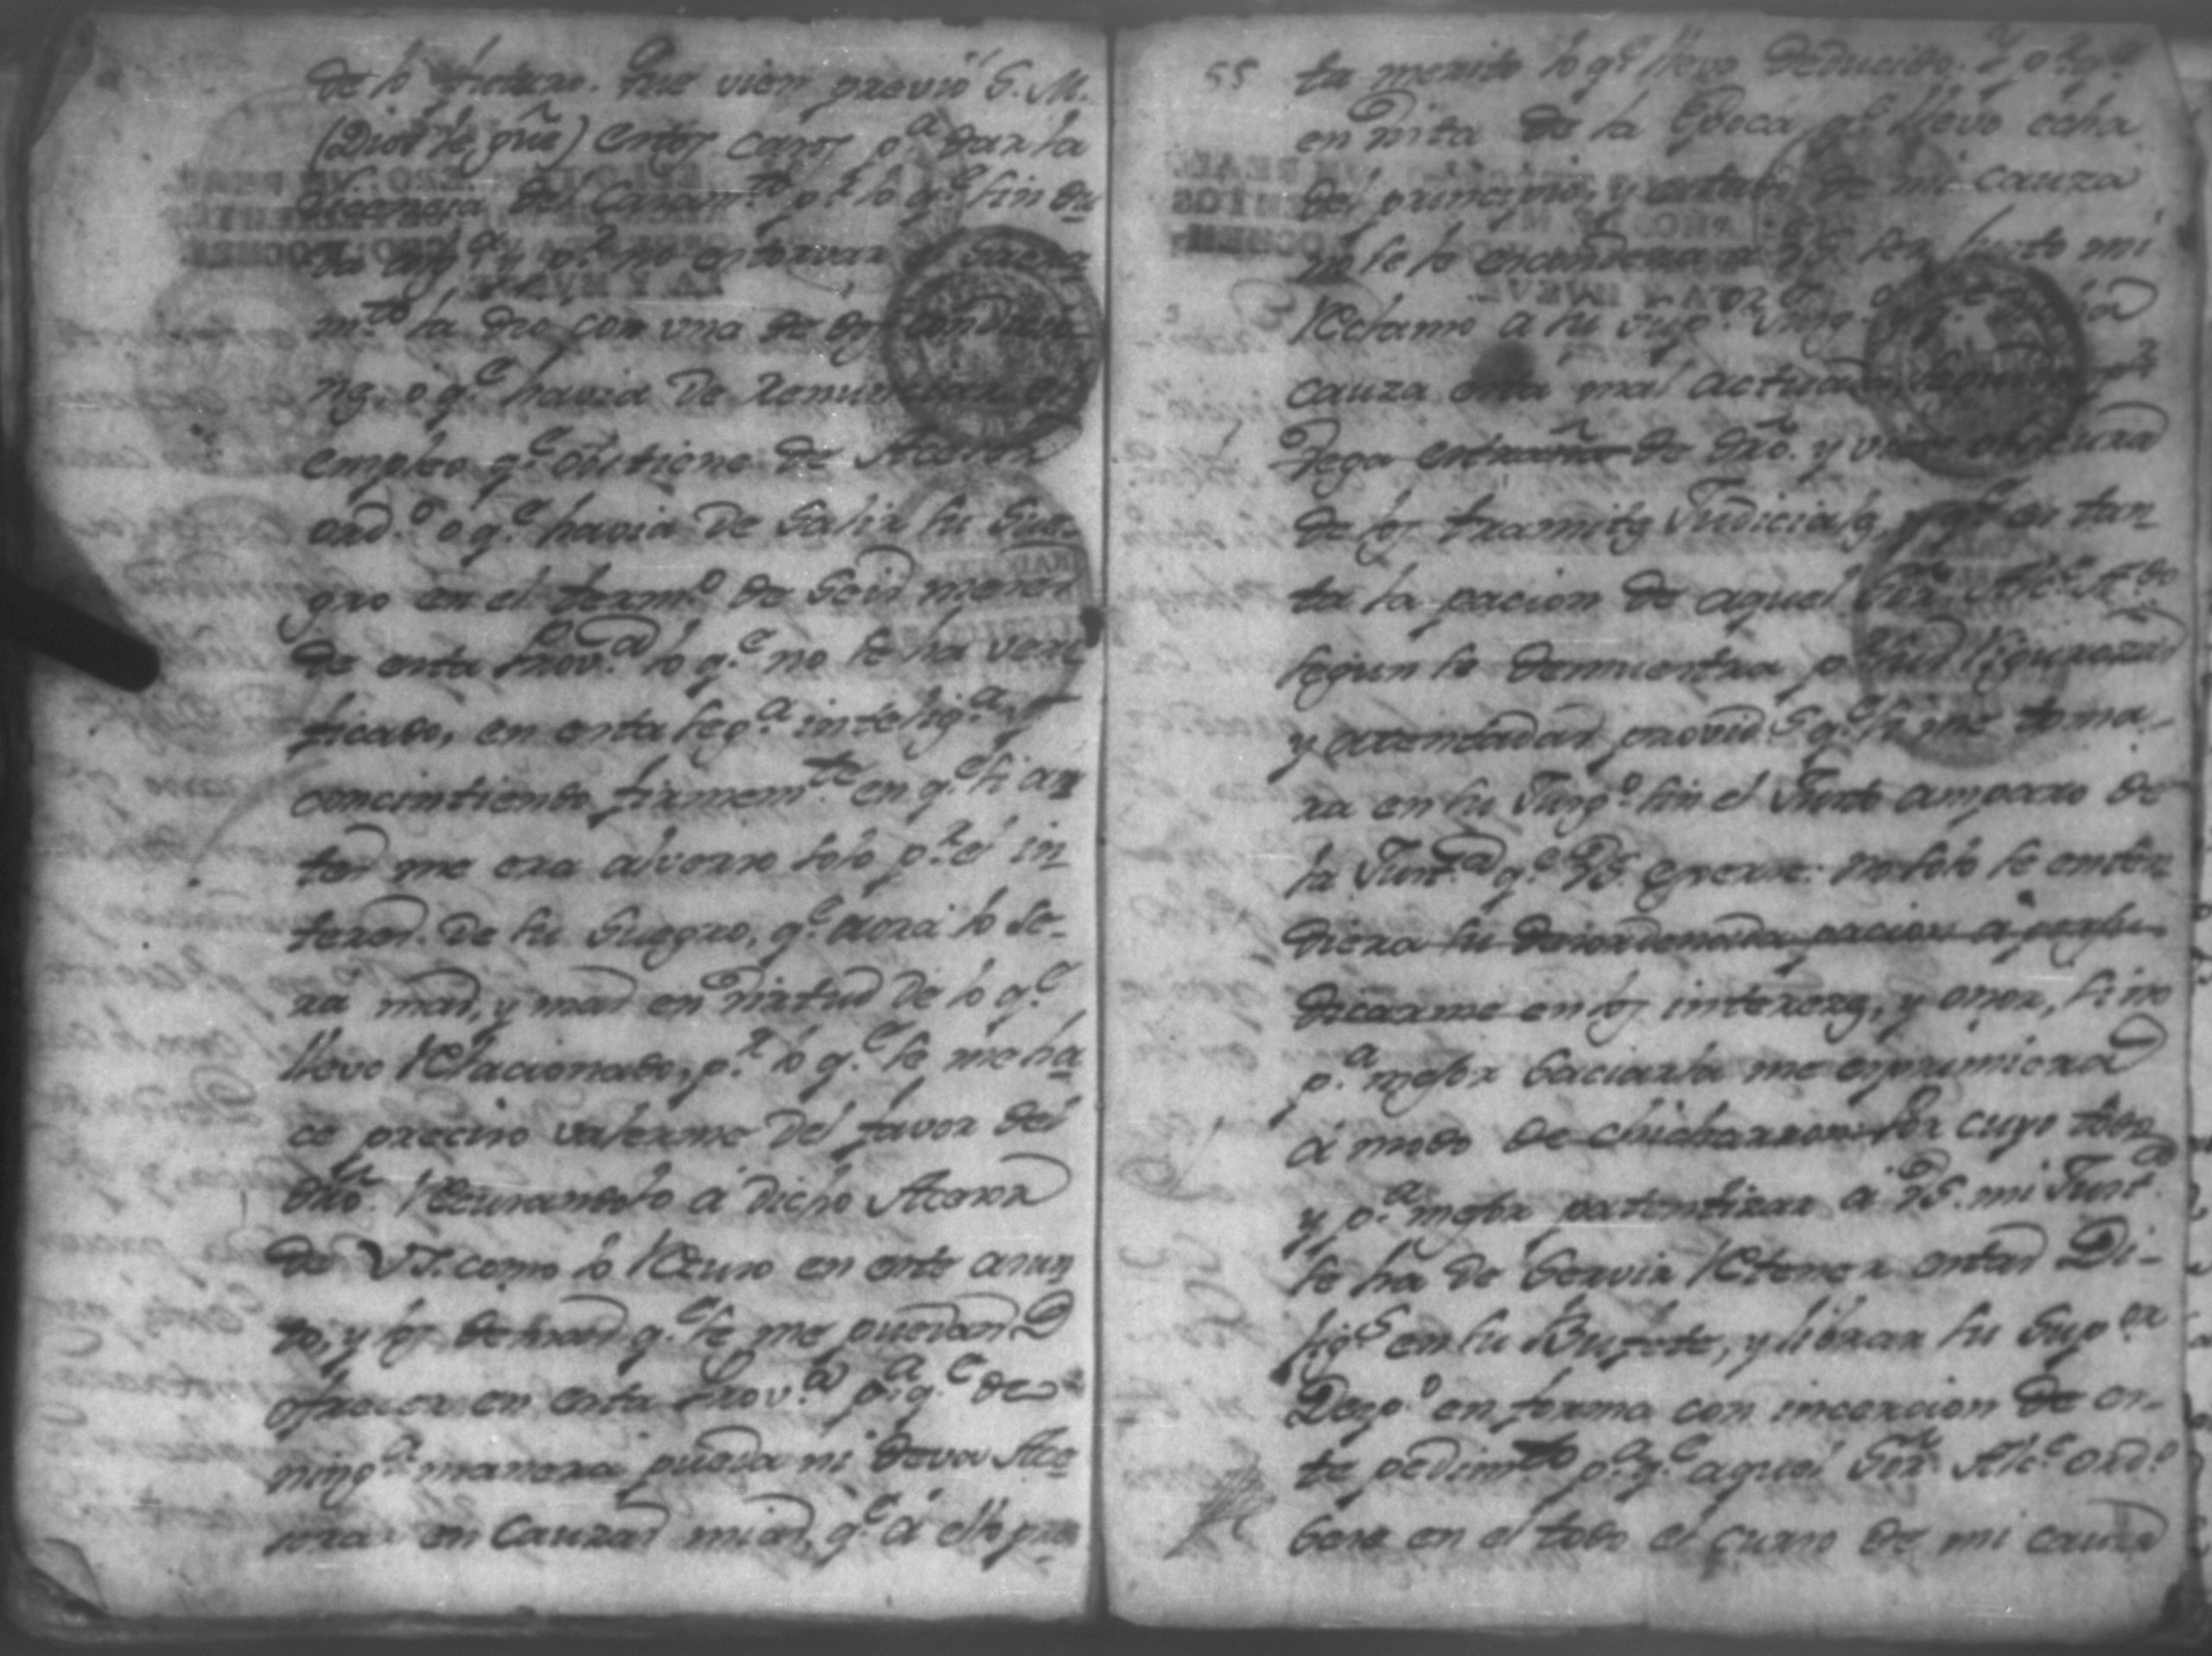 de lo futuro. Que vien previó S. M.
(Dios le gue) estos casos pa. dar la
licencia del Casamto. pr. lo qe. sin du
da alga. y pr. no estorvar el Casa
mto. la dio con una de dos
ns. o qe. havia de renunciar el
empleo qe. obtiene de Asesor
ordo. o qe. havia de salir su Sue
gro en el termo. de seis meses
de esta Prova. lo qe. no se ha veri
ficado, en esta sega. inteliga. y
concintiendo firmemte. en qe. si an
tes me era adverso solo pr. el in
teres de su Suegro, qe. aora lo se-
rá mas, y mas en virtud de lo qe.
llevo relacionado, pr. lo qe. se me ha
ce preciso valerme del favor del
dro. recusandolo á dicho Asesor
de VS. como lo recuso en este asun
to, y los demas qe. se me puedan
ofrecer en esta Prova. pa. qe. de
ninga. manera pueda ni deva Ase
sorar en Causas mias, qe. á ello pres
55 ta merito lo qe. llevo deducido. Y
en vista de la Epoca qe. llevo echa
del principio, y estado de mi causa
no se lo escondera a VS. ser justo mi
reclamo a su supr.
causa esta mal actuada
Jega estraña de dro. y
de los tramites Judiciales, y qe. es tan
ta la pacion de aquel Sor. Alce. Ao
segun se demuestra pr. sus rigurosas
y atentadas provids. qe. si me toma-
ra en su Juzgo. sin el Justo amparo de
la Justa. qe. VS. exerse: no solo se enten
diera su desordenada pacion a perju-
dicarme en los intereses, y onor, sino
pa. mejor saciarla me esprimiera
á modo de chicharron. Por cuyo todo
y pa. mejor patentizar á VS. mi Justa.
se ha de servir retener estas Di-
ligs. en su Bufete, y librar su Supor.
Despo. en forma con incercion de es-
te pedimto. pa. qe. aquel Sor. Alce. ordo.
sese en el todo el curso de mi causa